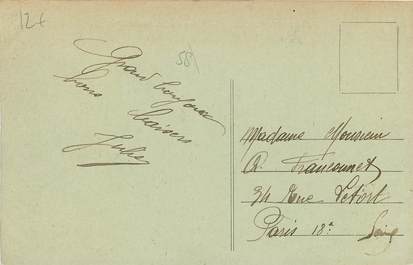 12+
58
Grand bonjour
bons
baisers
Julia
Madame Monsieur
A. Franconnet
34 Rue Letort
Paris 18e
Seine